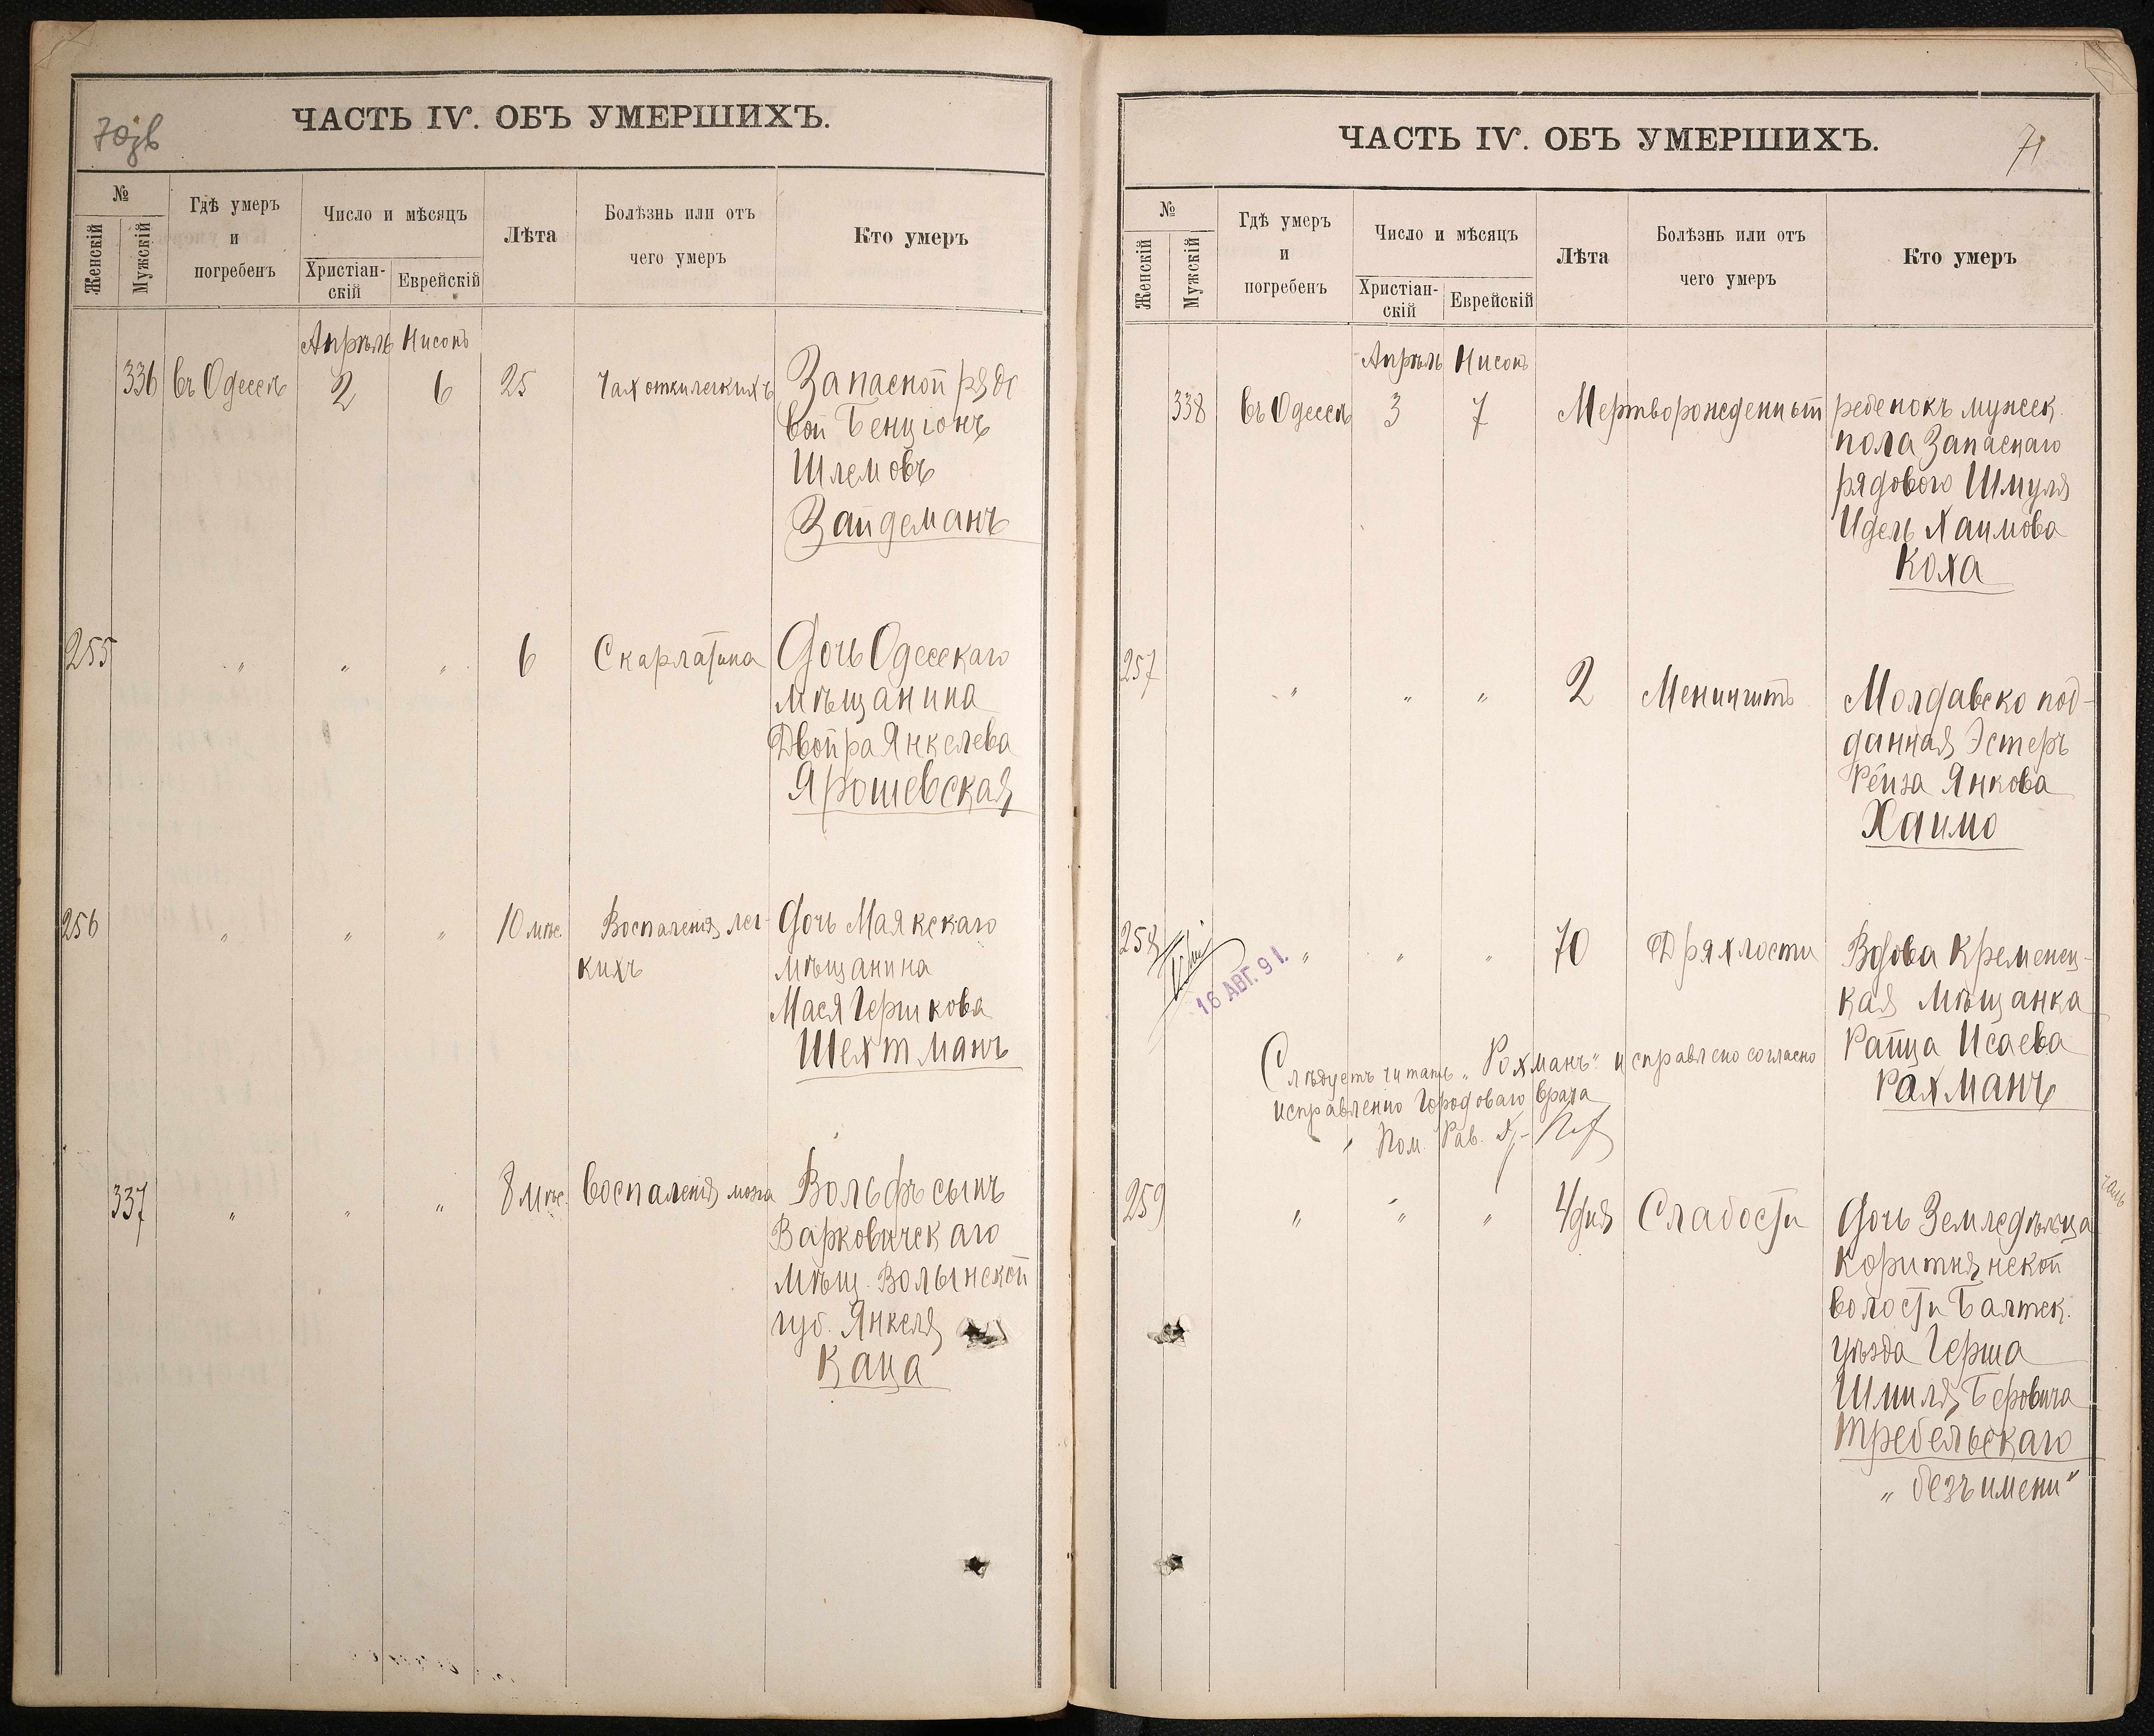 ЧАСТЬ IV. ОБЪ УМЕРШИХЪ.
№
Женскій
Мужскій
Гдѣ умеръ
и
погребенъ
Число и мѣсяцъ
Христіан-
скій
Еврейскій
Лѣта
Болѣзнь или отъ
чего умеръ
Кто умеръ
Апрѣль Нисонъ
336 въ Одессѣ 2 6 25 Запасной рядо
вой Бенціонъ
Шлемовъ
Зайдеманъ
255 " " " 6 Скарлатина Дочь Одесскаго
мѣщанина
Двойра Янкелева
Ярошевская
256 " " " 10 мѣс. Воспаленія лег- Дочь Маякскаго
кихъ мѣщанина
Мася Гершкова
Шехтманъ
337 " " " 8 мѣс. Воспаленія мозга Вольфъ сынъ
Варковичскаго
мѣщ. Волынской
губ. Янкеля
Каца
ЧАСТЬ IV. ОБЪ УМЕРШИХЪ.
71
№
Женскій
Мужскій
Гдѣ умеръ
и
погребенъ
Число и мѣсяцъ
Христіан-
скій
Еврейскій
Лѣта
Болѣзнь или отъ
чего умеръ
Кто умеръ
Апрѣль Нисонъ
338 въ Одессѣ 3 7 Мертворожденный ребенокъ мужск.
пола Запаснаго
рядового Шмуля
Идель Хаимова
Коха
257 " " " 2 Менингитъ Молдавско под-
данная Эстеръ
Рейза Янкова
Хаимо
258 " " " 70 Дряхлости Вдова Кременец-
16 АВГ. 91.
кая Мѣщанка
Райца Исаева
Рахманъ
Слѣдуетъ читать „Рохманъ" исправлено согласно
исправленію Городоваго врача
Пом. Рав.
259 " " " 4 дня Слабости Дочь Земледѣльца
Коритнянской
волости Балтск.
уѣзда Герша
Шмиля Беровича
Требельскаго
„безъ имени"